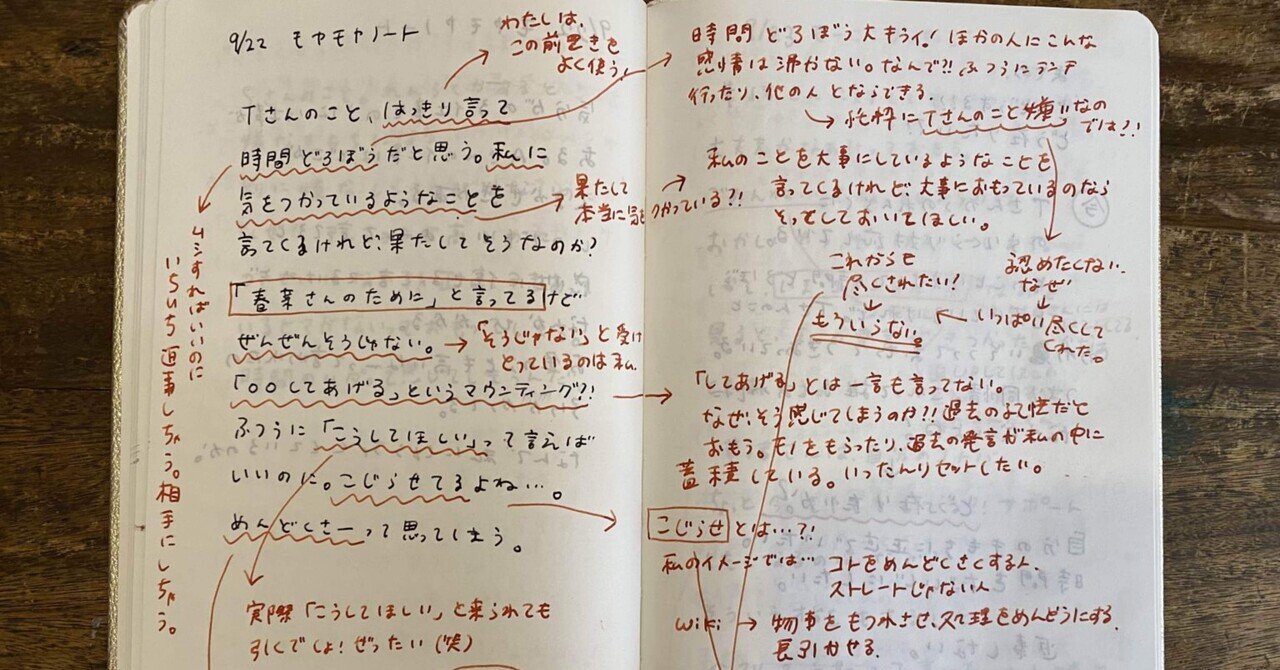 9/22 モヤモヤノート
わたしは、
この前置きを
よく使う!
Tさんのこと、はっきり言って
時間どろぼうだと思う。私に
気をつかっているようなことを
言ってくるけれど、果たしてそうなのか?
果たして
本当に気をつかっている?!
「春菜さんのために」と言ってるけど
ぜんぜんそうじゃない。
→「そうじゃない」と受け
とっているのは私
「〇〇してあげる」というマウンティング?!
ふつうに「こうしてほしい」って言えば
いいのに。こじらせてるよね…。
めんどくさーって思ってしまう。
ムシすればいいのに
いちいち返事しちゃう。相手にしちゃう。
実際「こうしてほしい」と来られても
引くでしょ!ぜったい(笑)
時間どろぼう大キライ!ほかの人にこんな
感情は沸かない。なんで?!ふつうにランチ
行ったり、他の人とならできる。
→純粋にTさんのこと嫌いなの
では?!
私のことを大事にしているようなことを
言ってくるけれど、大事におもっているのなら
そっとしておいてほしい。
これからも
尽くされたい!
↓
もういらない。
認めたくない。
なぜ
↓
← いっぱい尽くして
くれた。
「してあげる」とは一言も言ってない。
なぜ、そう感じてしまうのか?!過去の
おもう。モノをもらったり、過去の発言が私の中に
蓄積している。いったんリセットしたい。
こじらせとは…?!
私のイメージでは… コトをめんどくさくする人、
ストレートじゃない人
wiki → 物事をもつれさせ、処理をめんどうにする。
長引かせる。